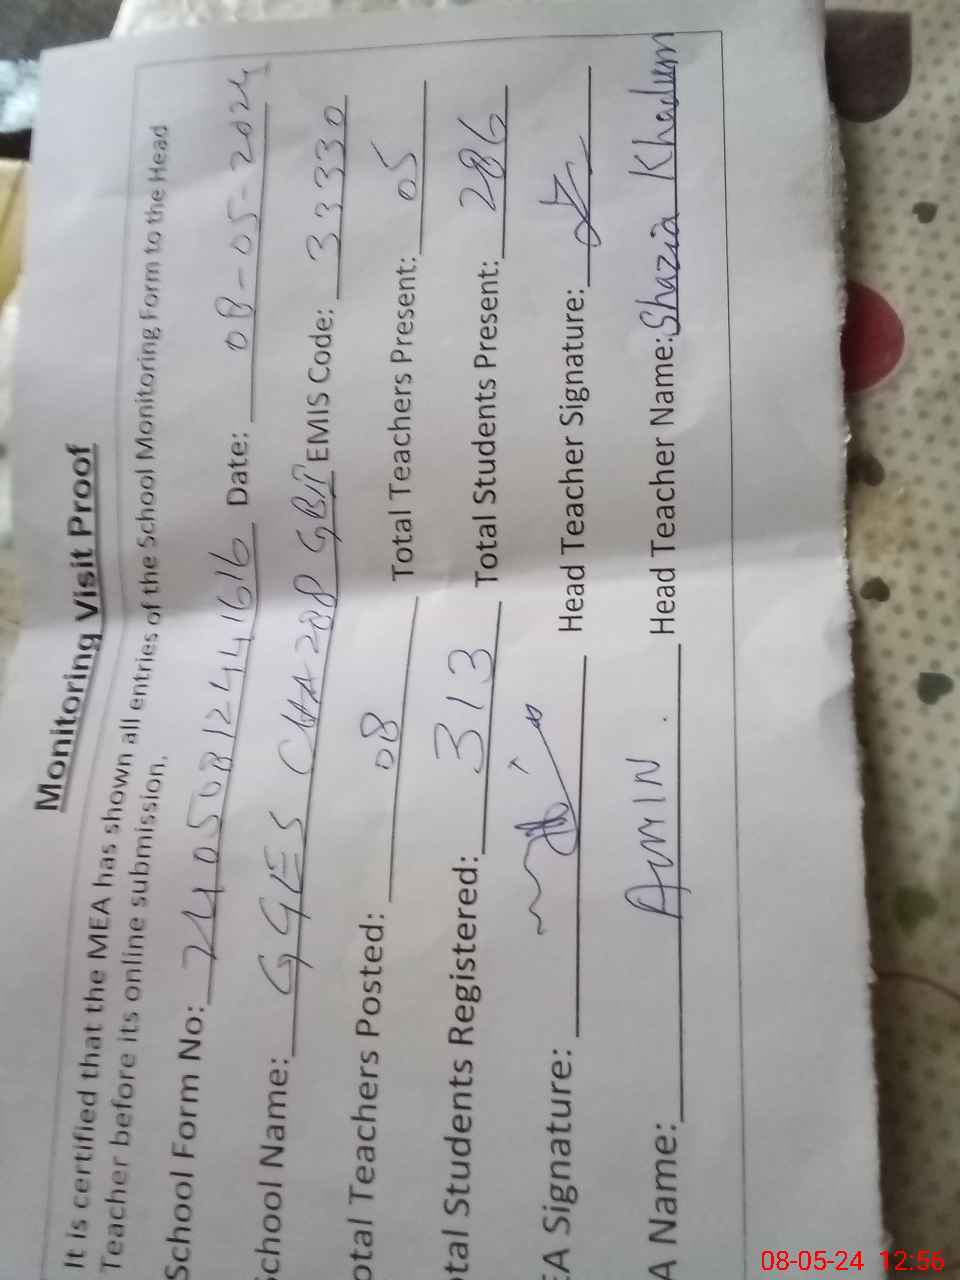 Monitoring Visit Proof
It is certified that the MEA has shown all entries of the School Monitoring Form to the Head
Teacher before its online submission.
School Form No: 240508124441616 Date: 08-05-2024
School Name: GGES CHA 288 GBII EMIS Code: 33330
otal Teachers Posted: 08 Total Teachers Present: 05
otal Students Registered: 313 Total Students Present: 286
EA Signature: Head Teacher Signature:
A Name: AMIN. Head Teacher Name: Shazia Khadum
08-05-24 12:56